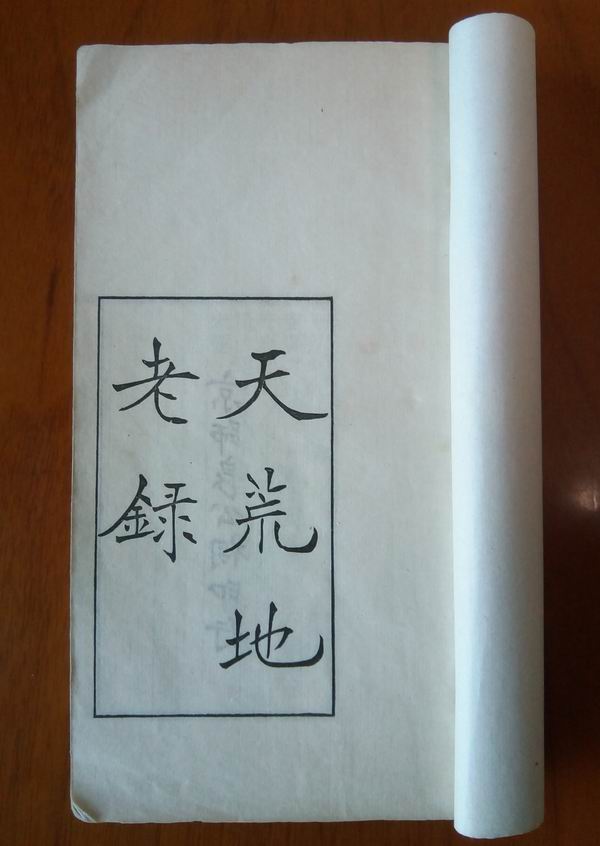 天荒地
老録